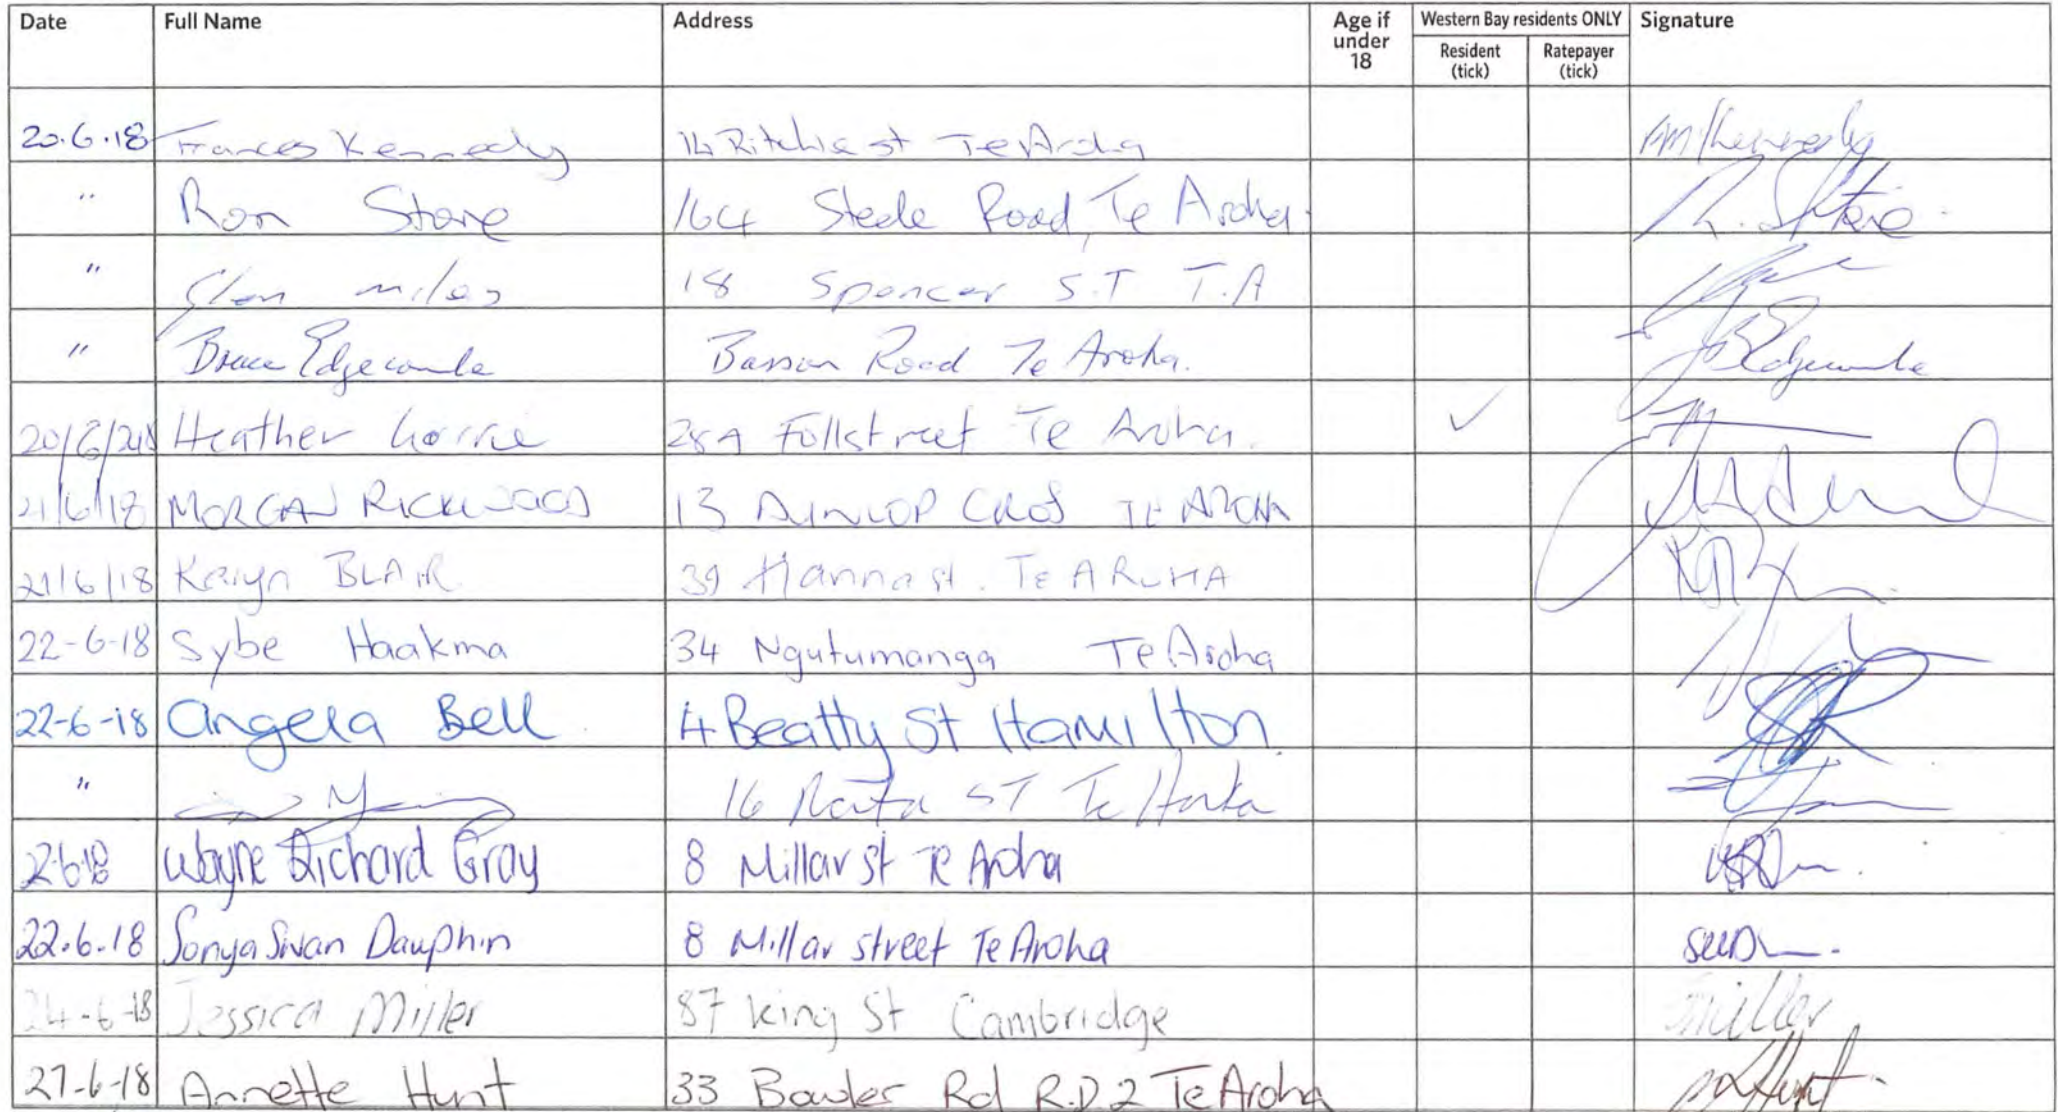 Date Full Name Address Age if under 18 Western Bay residents ONLY Resident (tick) Ratepayer (tick) Signature
20.6.18 Frances Kennedy 14 Ritchie st Te Aroha
" Ron Stone 164 Road, Te Aroha.
" Glen miles 18 Spencer S.T T.A
" Bruce Edgecombe Road Te Aroha.
Heather 28A street Te Aroha.
21/6/18 MORGAN RICKWOOD 13 DUNLOP TE AROHA
21/6/18 Karyn BLAIR 39 Hanna st. TE AROHA
22-6-18 Sybe Haakma 34 Ngutumanga Te Aroha
22-6-18 Angela Bell 4 Beatty St Hamilton
" 16 Rata ST Te
22.6.18 Wayne Richard Gray 8 Millar st Te Aroha
22.6.18 Sonya Swan Dauphin 8 Millar street Te Aroha
24-6-18 Jessica Miller 87 King St Cambridge
27-6-18 Annette Hunt 33 Bowler Rd R.D.2 Te Aroha